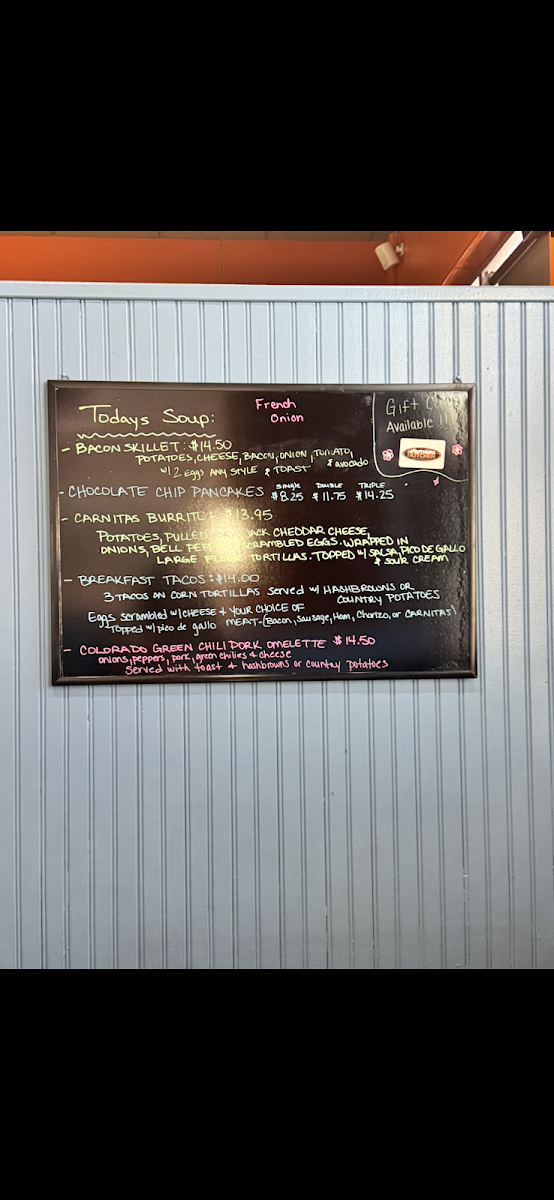 Todays Soup:
French
Onion
Gift
Available!!
- BACON SKILLET: $14.50
POTATOES, CHEESE, BACON, ONION, TOMATO,
& avocado
w/ 2 Eggs ANY STYLE & TOAST
SINGLE DOUBLE TRIPLE
- CHOCOLATE CHIP PANCAKES $8.25 $11.75 $14.25
- CARNITAS BURRITO: $13.95
POTATOES, PULLED JACK CHEDDAR CHEESE,
ONIONS, BELL SCRAMBLED EGGS. WRAPPED IN
LARGE TORTILLAS. TOPPED w/ SALSA, PICO DE GALLO
& SOUR CREAM
- BREAKFAST TACOS: $14.00
3 TACOS ON CORN TORTILLAS Served w/ HASHBROWNS OR
COUNTRY POTATOES
Eggs scrambled w/ CHEESE & YOUR CHOICE OF
MEAT-(Bacon, Sausage, Ham, Chorizo, or CARNITAS)
Topped w/ pico de gallo
- COLORADO GREEN CHILI PORK OMELETTE $14.50
onions, peppers, pork, green chilies & cheese
Served with toast & hashbrowns or country potatoes